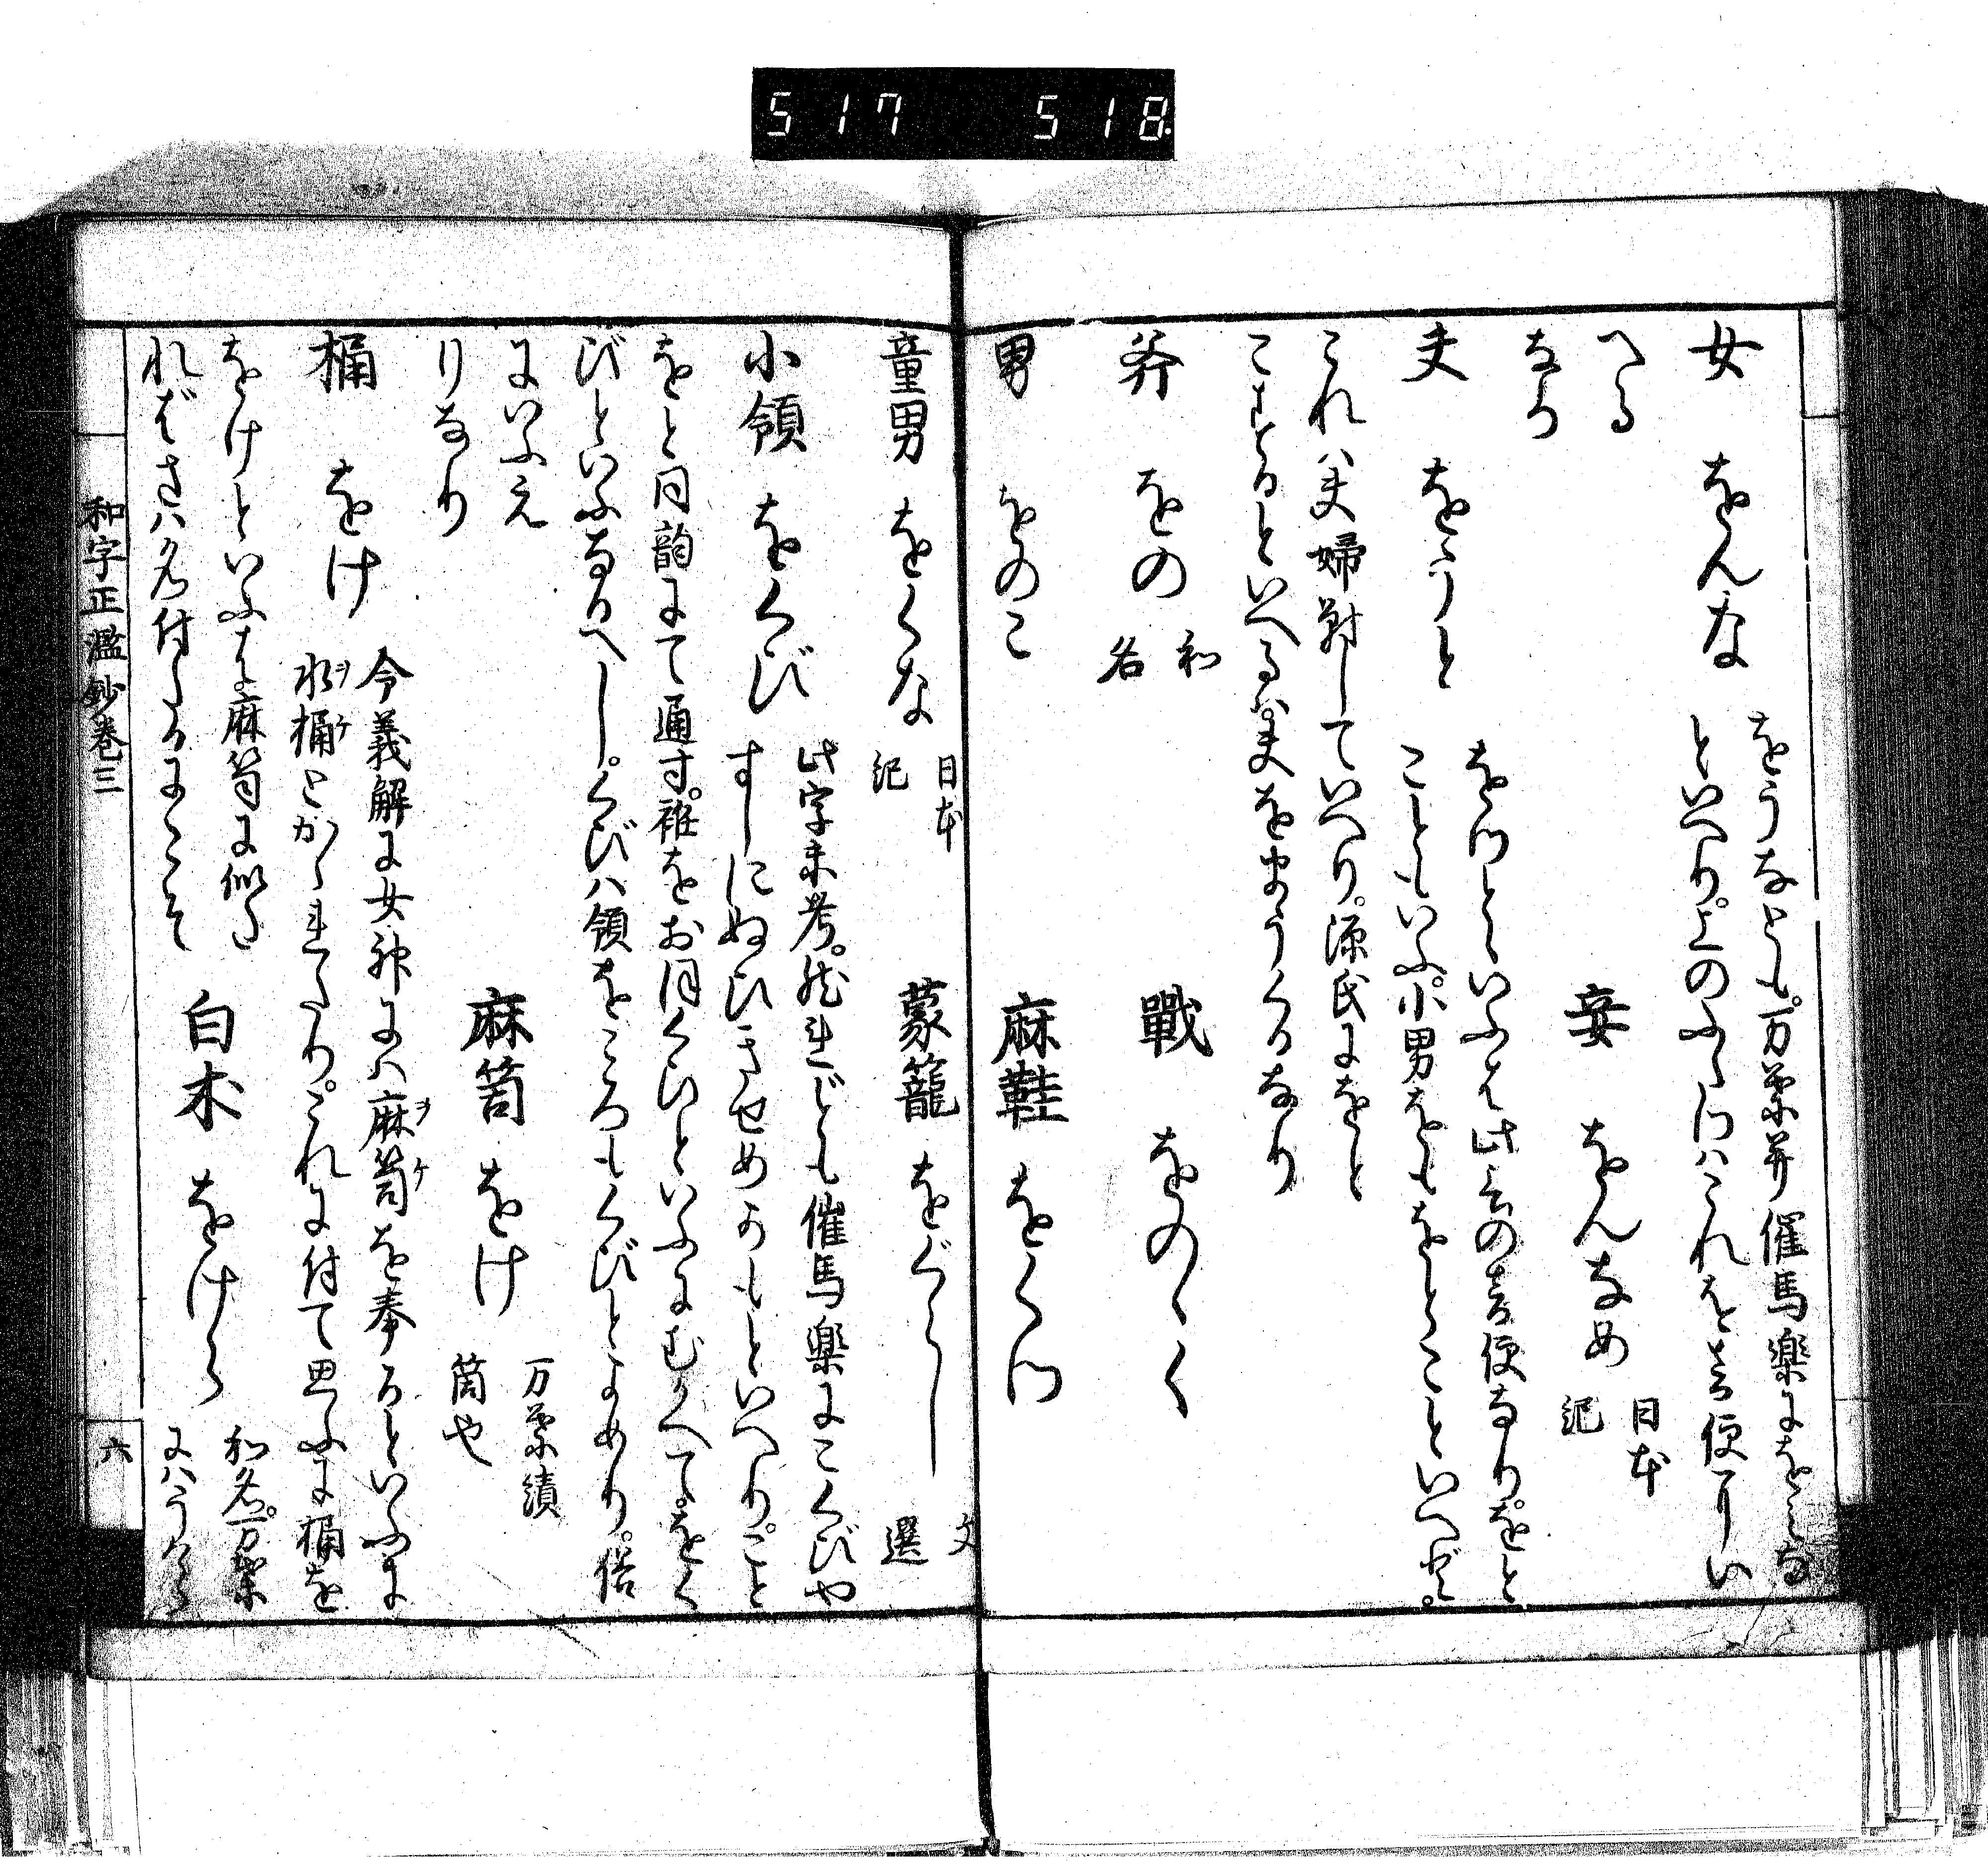 517 518
女 をんな をうなとも。万葉并催馬楽にをみな
といへり。上のふたつはこれを音便にい
へる
なり
妾 をんなめ 日本
紀
夫 をうと をつとといふは此言の音便なり。をと
こともいふ。小男をもをとこといへど。
これハ夫婦對していへり。源氏にをと
こするといへるハ。夫をまうくるなり
斧 をの 和
名
戰 をのゝく
男 をのこ
麻鞋 をくつ
童男 をくな 日本
紀
蒙籠 をぐらし 文
選
小領 をくび 此字未考。然れども催馬楽にこくびや
すしにぬひきせめかもといへり。こと
をと同韻にて通す。袵をおほくひといふにむかへて。をく
びといふなるへし。くびハ領をころもくびとよめり。俗
にいふえ
りなり
麻笥 をけ 万葉績
筒也
桶 をけ 今義解に女神にハ麻笥を奉るといふに
水桶とかゝれたり。これに付て思ふに桶を
をけといふは麻笥に似た
れバさハ名付たるにこそ
白木 をけら 和名。万葉
にハうけら
和字正濫鈔巻三
六